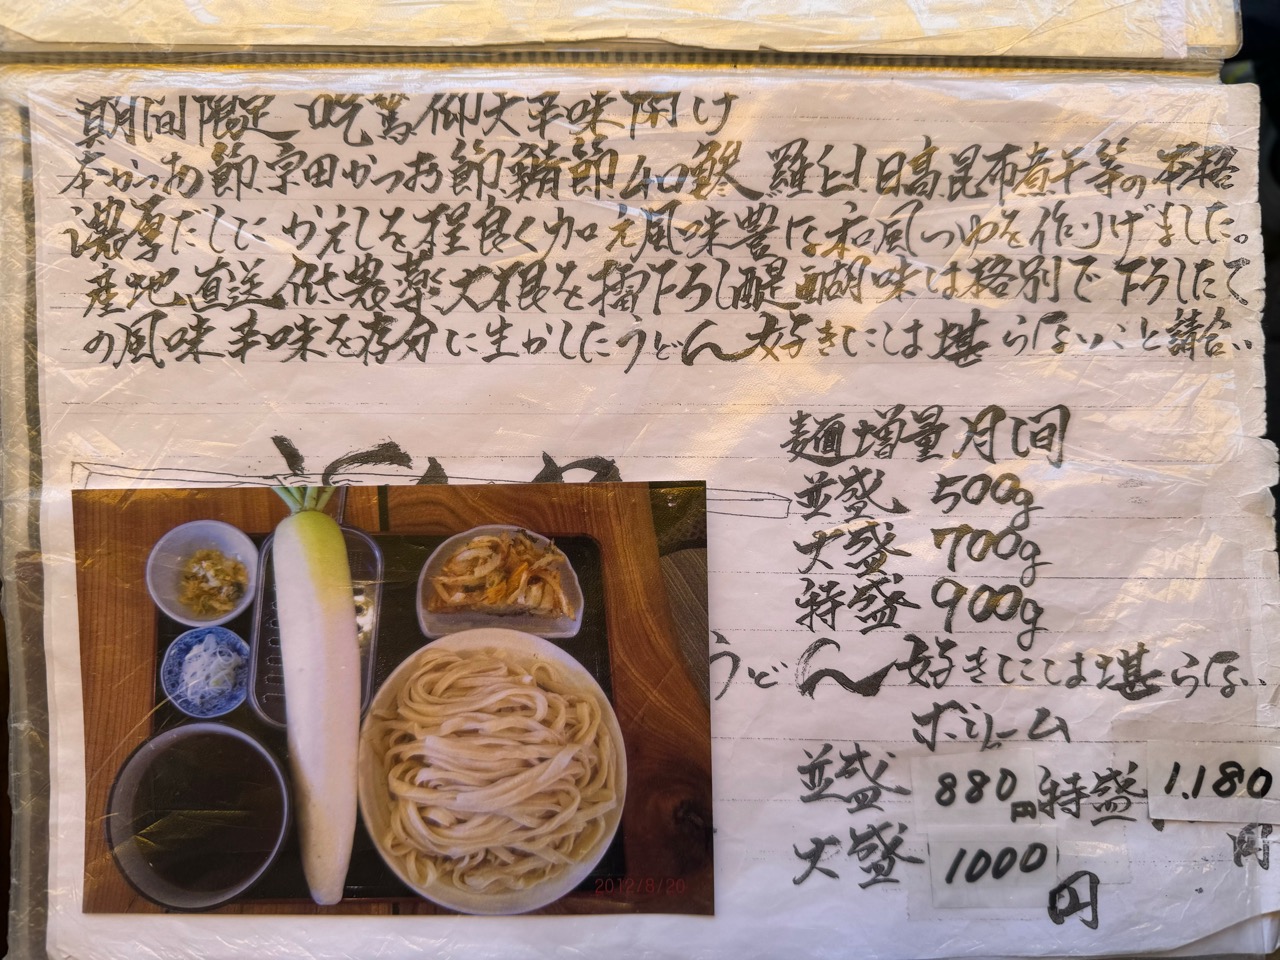 期間限定 吃驚仰大辛味付け
本かつお節、宗田かつお節、鯖節、羅臼、日高昆布煮干等の本格
濃厚だしにかえしを程良く加え風味豊な和風つゆを作りげました。
産地直送低農薬大根を擂下ろし醍醐味は格別で下ろしたて
の風味辛味を存分に生かしたうどん好きには堪らないこと請合い
麺増量月間
並盛 500g
大盛 700g
特盛 900g
うどん好きには堪らない
ボリーム
並盛 880円 特盛 1.180円
大盛 1000円
2012/8/20